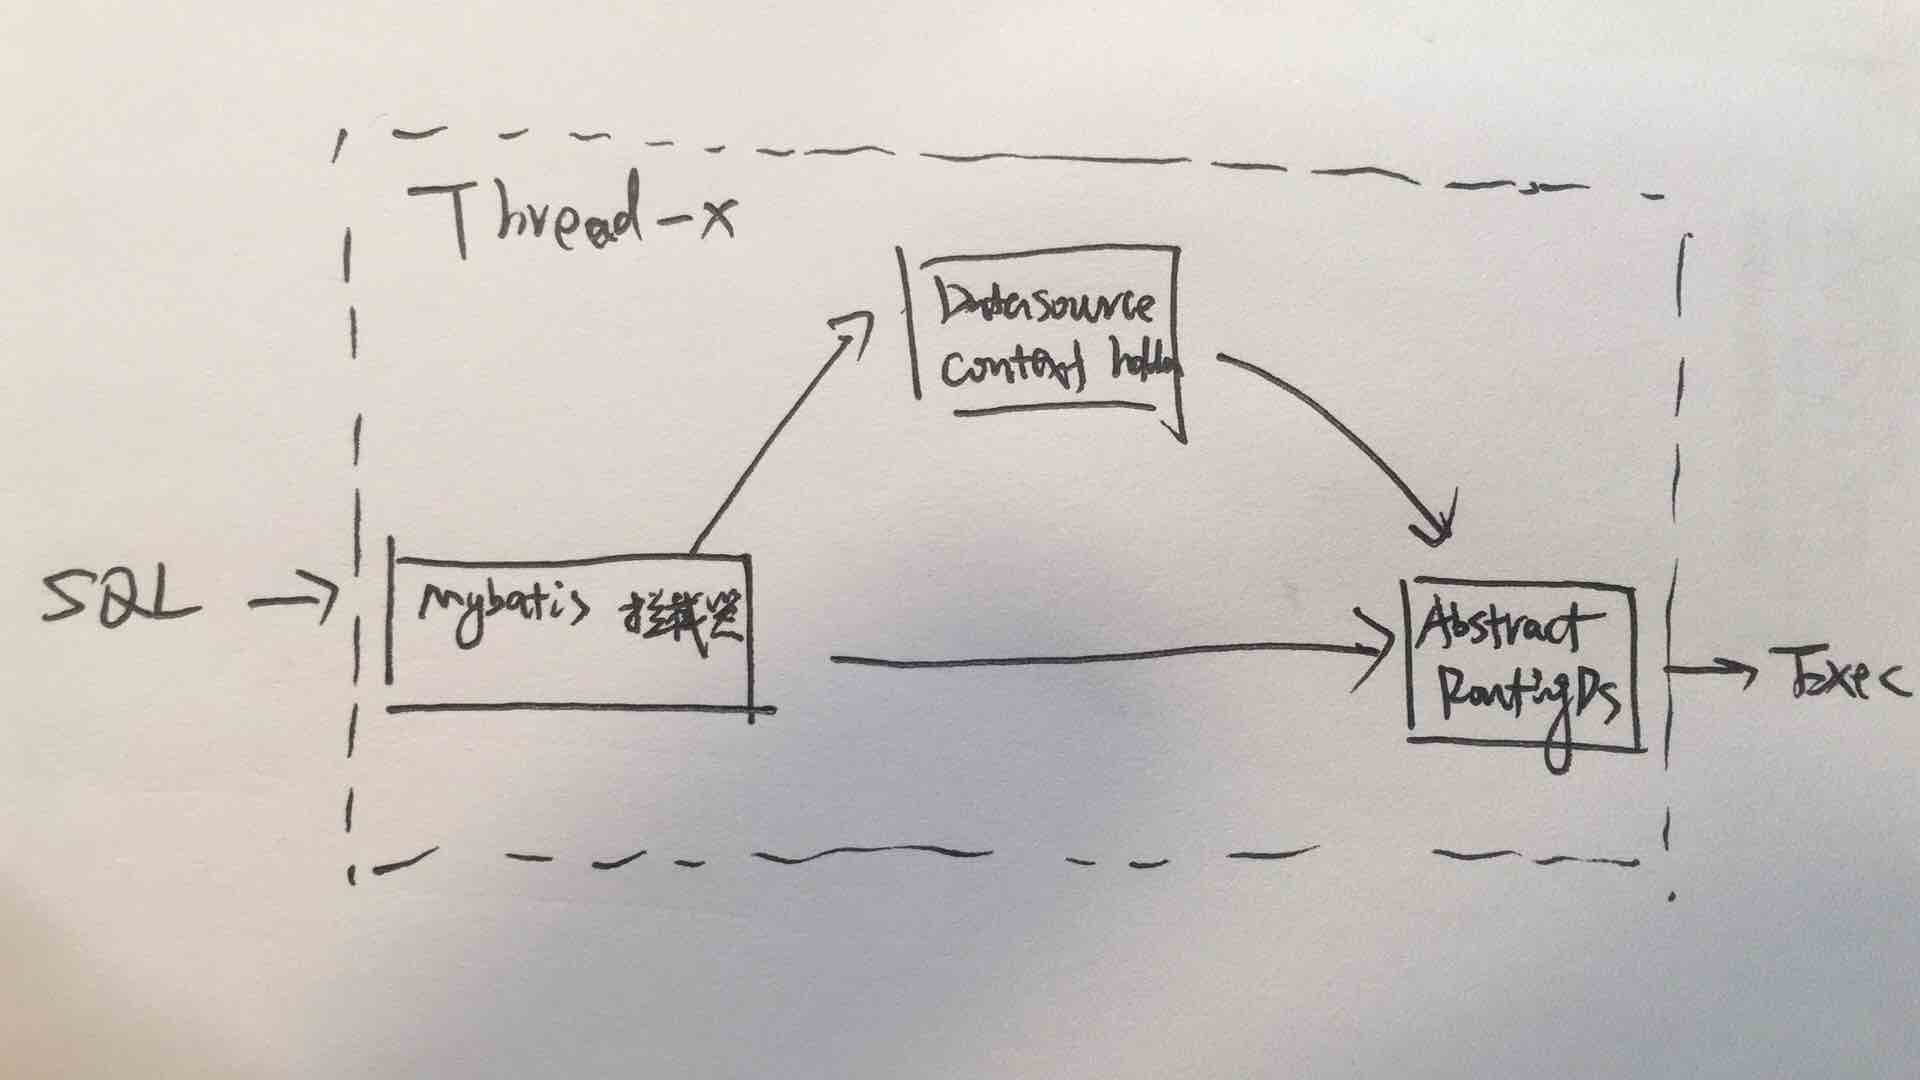 Thread-x
Datasource
context holder
SQL
mybatis 拦截器
Abstract
RoutingDs
Exec